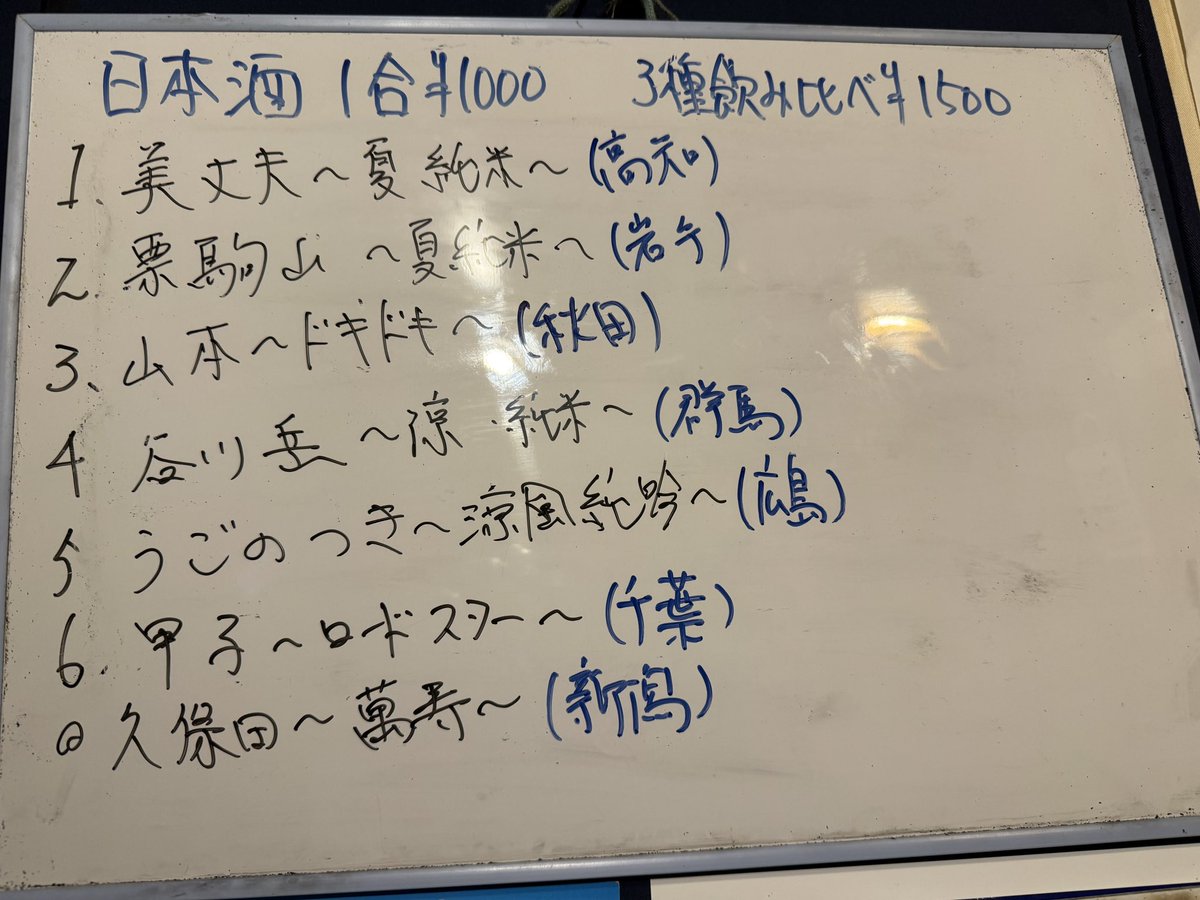 日本酒 1合¥1000 3種飲み比べ¥1500
1. 美丈夫～夏純米～(高知)
2. 栗駒山～夏純米～(岩手)
3、山本～ドキドキ～(秋田)
4 谷川岳～涼・純米～(群馬)
5 うごのつき～涼風純吟～(広島)
6. 甲子～ロードスター～(千葉)
◎久保田～萬寿～(新潟)